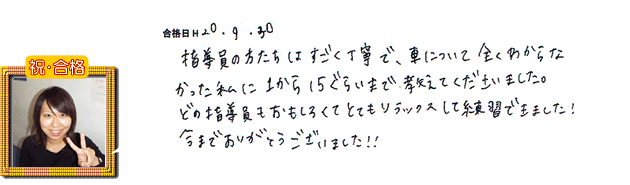 合格日 H20.9.30
指導員の方たちはすごく丁寧で、車について全くわからな
かった私に1から15ぐらいまで教えてくださいました。
どの指導員もおもしろくてとてもリラックスして練習できました!
今までありがとうございました!!
祝・合格